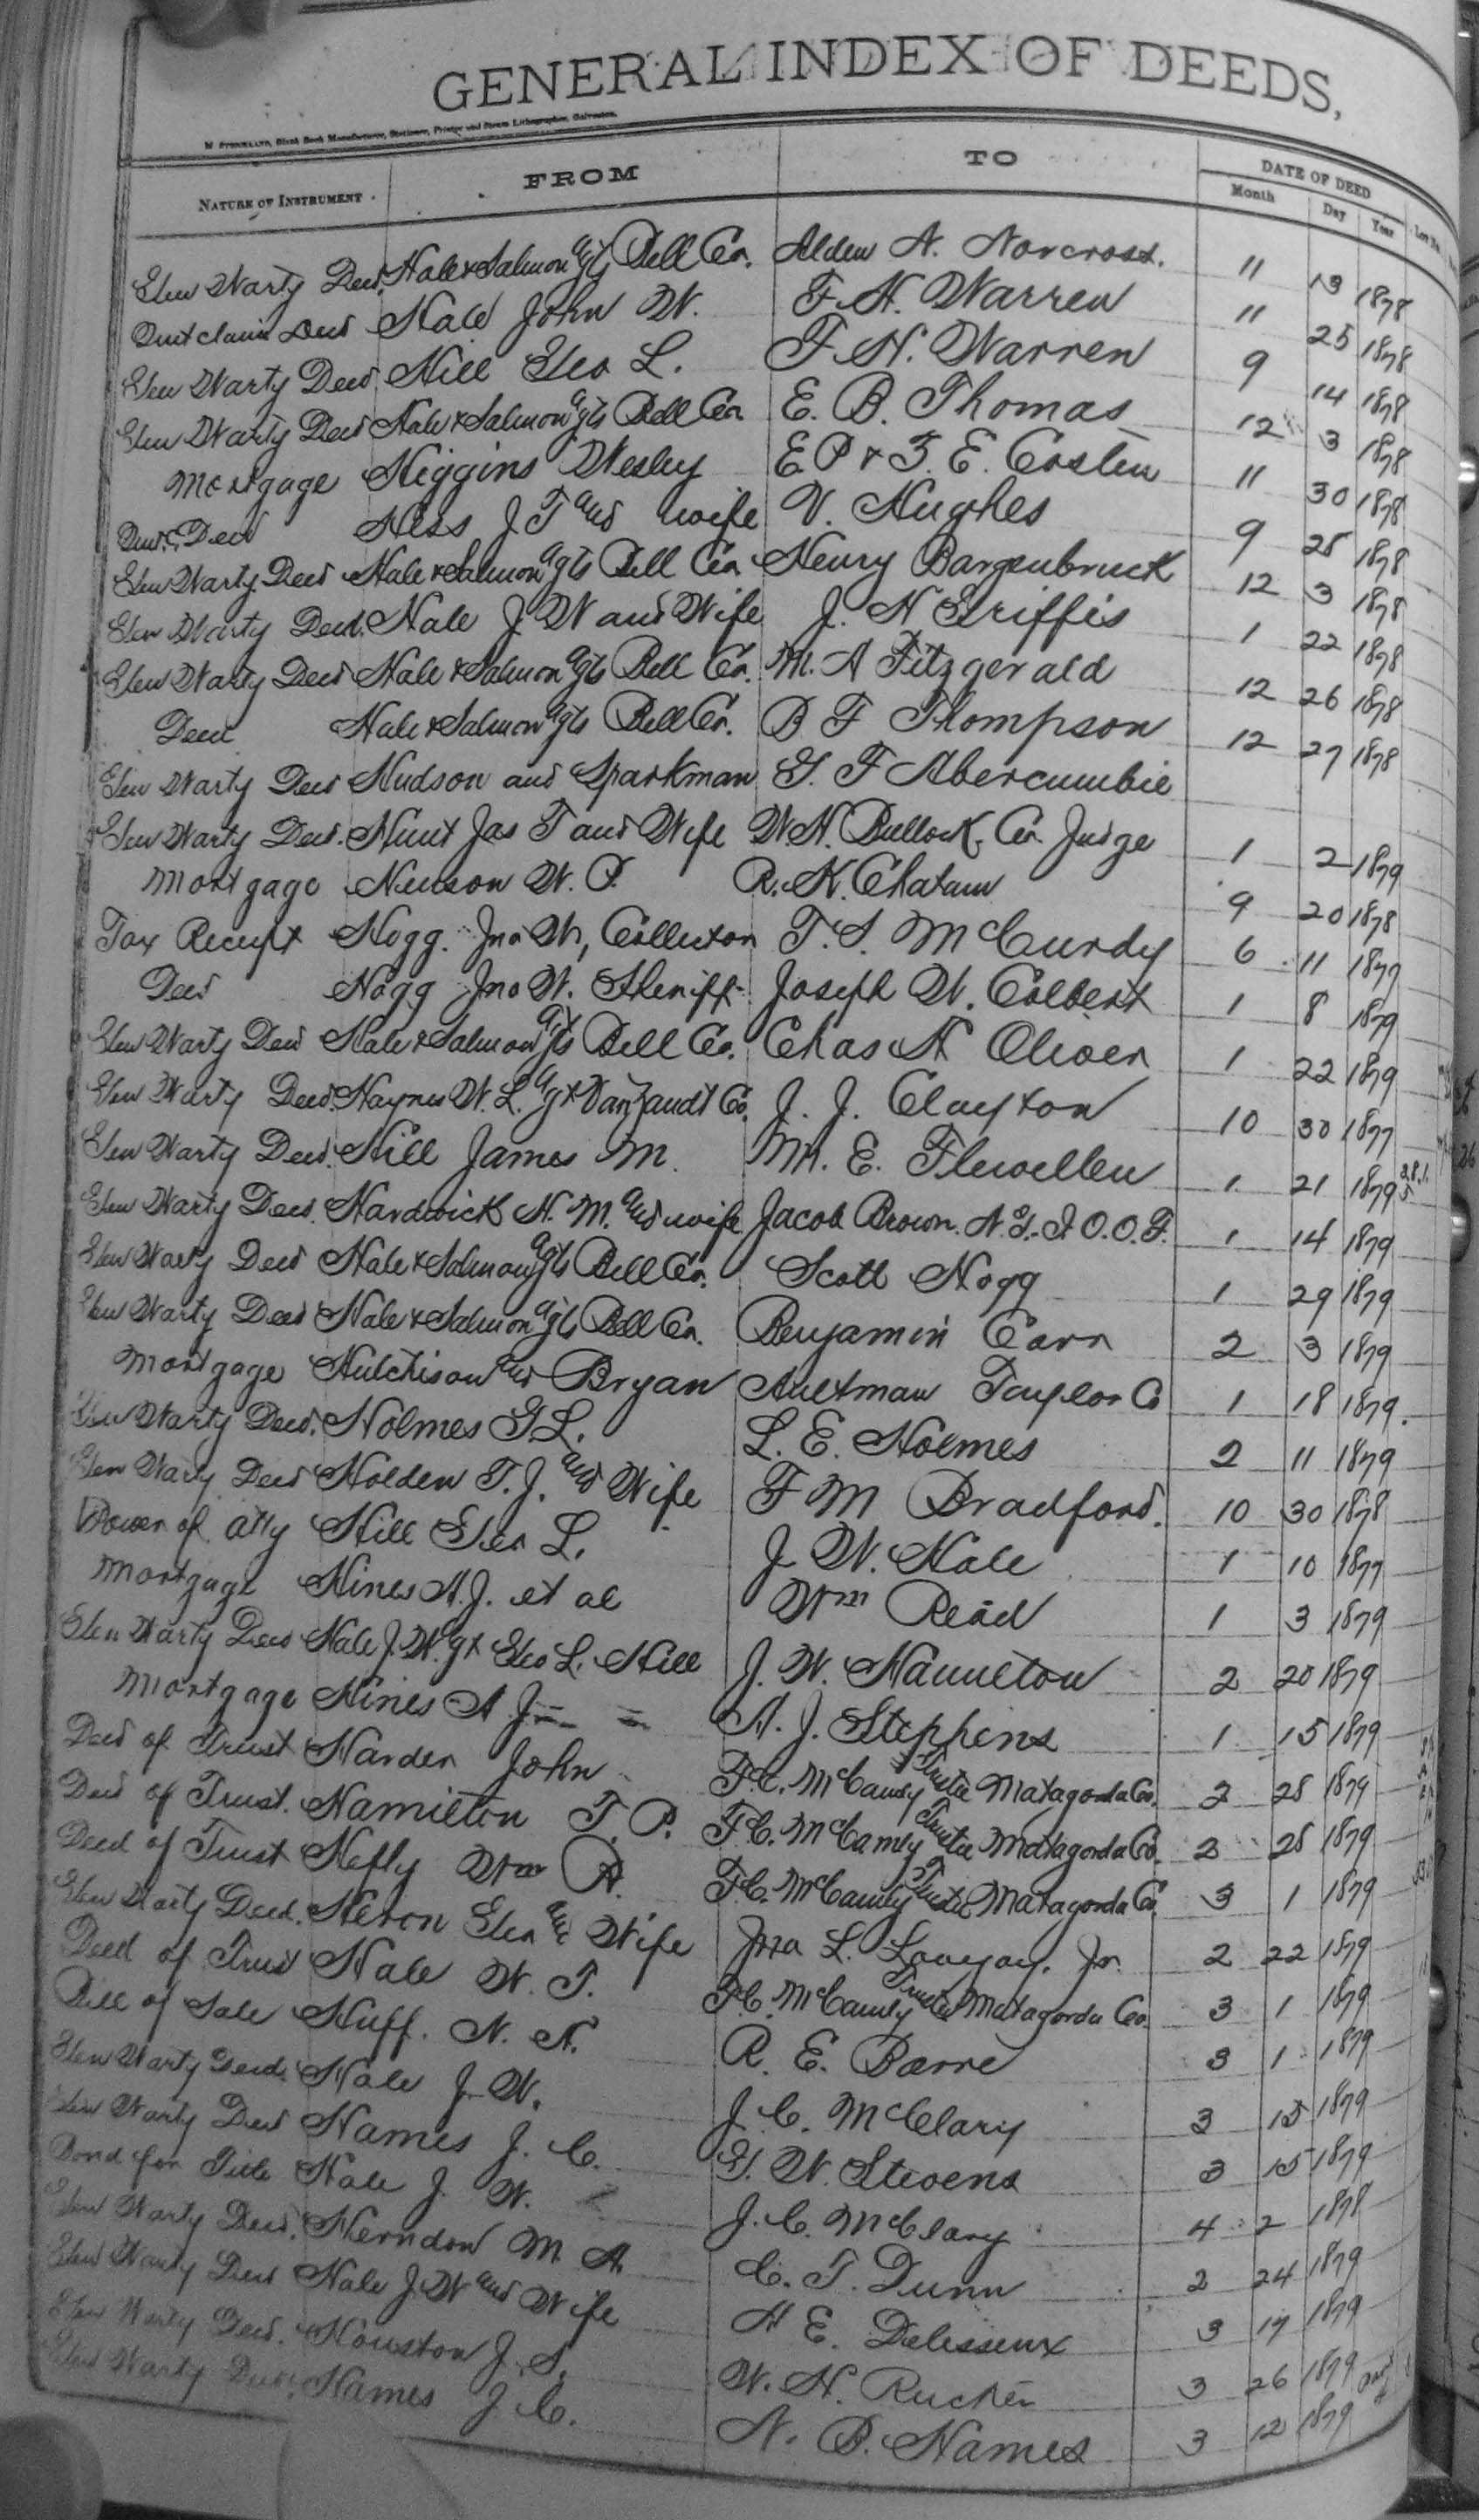 GENERAL INDEX OF DEEDS,
NATURE OF INSTRUMENT FROM TO DATE OF DEED
Month Day Year Lot No.
Gen Warty Deed Hale & Salmon agts Bell Co. Alden A. Norcross. 11 13 1878
Quit claim Deed Hale John W. F. H. Warren 11 25 1878
Gen Warty Deed Hill Geo L. F. H. Warren 9 14 1878
Gen Warty Deed Hale & Salmon agts Bell Co E. B. Thomas 12 3 1878
Mortgage Higgins Wesley E P & E. Costen 11 30 1878
Deed Hess J T and wife V. Hughes 9 28 1878
Gen Warty Deed Hale & Salmon agts Bell Co Henry 12 3 1878
Gen Warty Deed. Hale J W and Wife J. H Griffis 1 22 1878
Gen Warty Deed Hale & Salmon agts Bell Co. M. A Fitzgerald 12 26 1878
Deed Hale & Salmon agts Bell Co. B F Thompson 12 27 1878
Gen Warty Deed Hudson and Sparkman G. F Abercumbie
Gen Warty Deed. Hunt Jas T and Wife W. H. Bullock, Co Judge 1 2 1879
Mortgage W. P. R. K. Chatam 9 20 1878
Tax Receipt Hogg Jno W, Collector T. S. McCurdy 6 11 1877
Deed Hogg Jno W. Sheriff Joseph W. Colbert 1 8 1879
Gen Warty Deed Hale & Salmon agts Bell Co. Chas H Oliver 1 22 1879
Gen Warty Deed. Haynes W. L. agt Vanzandt Co. J. J. Clayton 10 30 1877
Gen Warty Deed. Hill James M. M. E. Flewellen 1 21 1879
Gen Warty Deed. Hardwick H. M. and wife Jacob Brown. N. G. I. O. O. F. 1 14 1879
Gen Warty Deed Hale & Salmon agts Bell Co. Scott Hogg 1 29 1879
Gen Warty Deed Hale & Salmon agts Bell Co. Benjamin Carr 2 3 1879
Mortgage Hutchison and Bryan Aultman Taylor Co 1 18 1879.
Gen Warty Deed. Holmes G. L. L. E. Holmes 2 11 1879
Gen Warty Deed Holden T. J. and Wife F M Bradford. 10 30 1878
Power of atty Hill Geo L. J. W. Hale 1 10 1877
Mortgage Hines A. J. et al Wm Read 1 3 1879
Gen Warty Deed Hale J. W. agt Geo L. Hill J. W. Hamilton 2 20 1879
Mortgage Hines A J. A. J. Stephens 1 15 1879
Deed of Trust Harder John F. C. McCamly Trustee Matagorda Co. 2 28 1879
Deed of Trust. Hamilton T. P. F. C. McCamly Trustee Matagorda Co. 2 28 1879
Deed of Trust Hefly Wm R. F. C. McCamly Trustee Matagorda Co. 3 1 1879
Gen Warty Deed. Heron Geo and Wife Jno L. Lovejoy, Jr. 2 22 1879
Deed of Trust Hale W. T. F. C. McCamly Trustee Matagorda Co. 3 1 1879
Bill of Sale Huff. N. N. R. E. Barre 3 1 1879
Gen Warty Deed. Hale J. W. J. C. McClary 3 15 1879
Gen Warty Deed Hames J. C. G. W. Stevens 3 15 1879
Bond for Title Hale J. W. J. C. McClary 4 2 1878
Gen Warty Deed. Herndon M. A. C. T. Dunn 2 24 1879
Gen Warty Deed Hale J. W and Wife H E. Delisseux 3 17 1879
Gen Warty Deed. Houston J. S. W. H. Rucker 3 26 1879
Gen Warty Deed. Hames J. C. N. B. Hames 3 12 1879